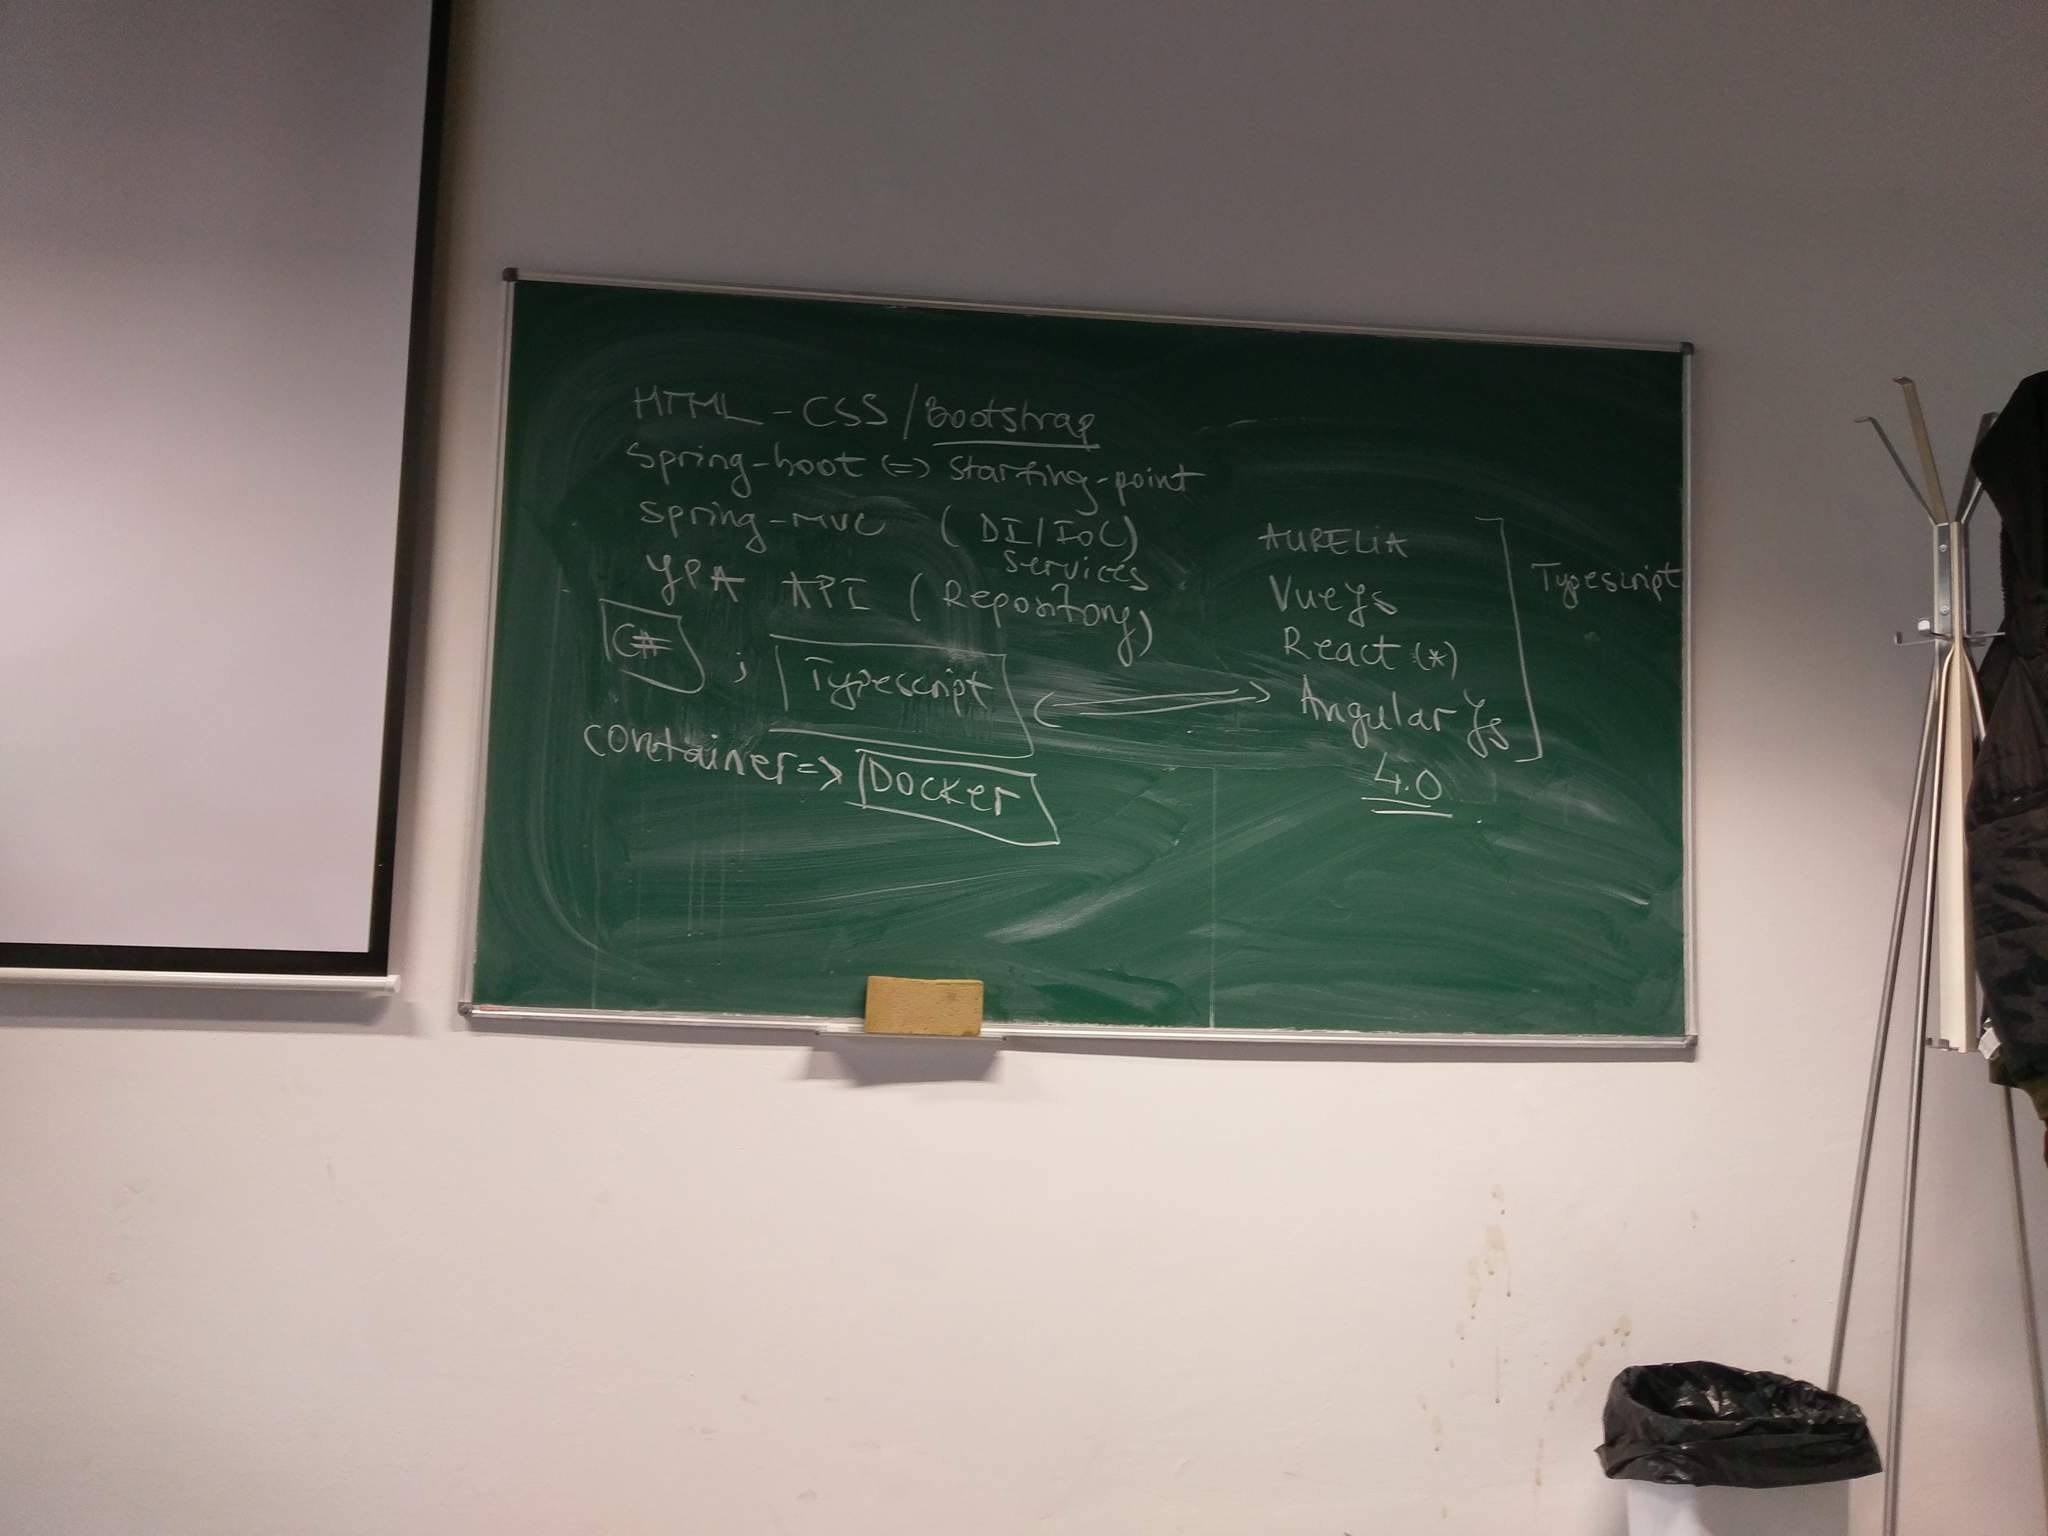 HTML - CSS / Bootstrap
Spring-boot <=> starting-point
Spring-MVC ( DI/IoC)
services
JPA API ( Repository)
C# ; Typescript
container => Docker
AURELIA
VueJs
React (*)
Angular Js
4.0
Typescript